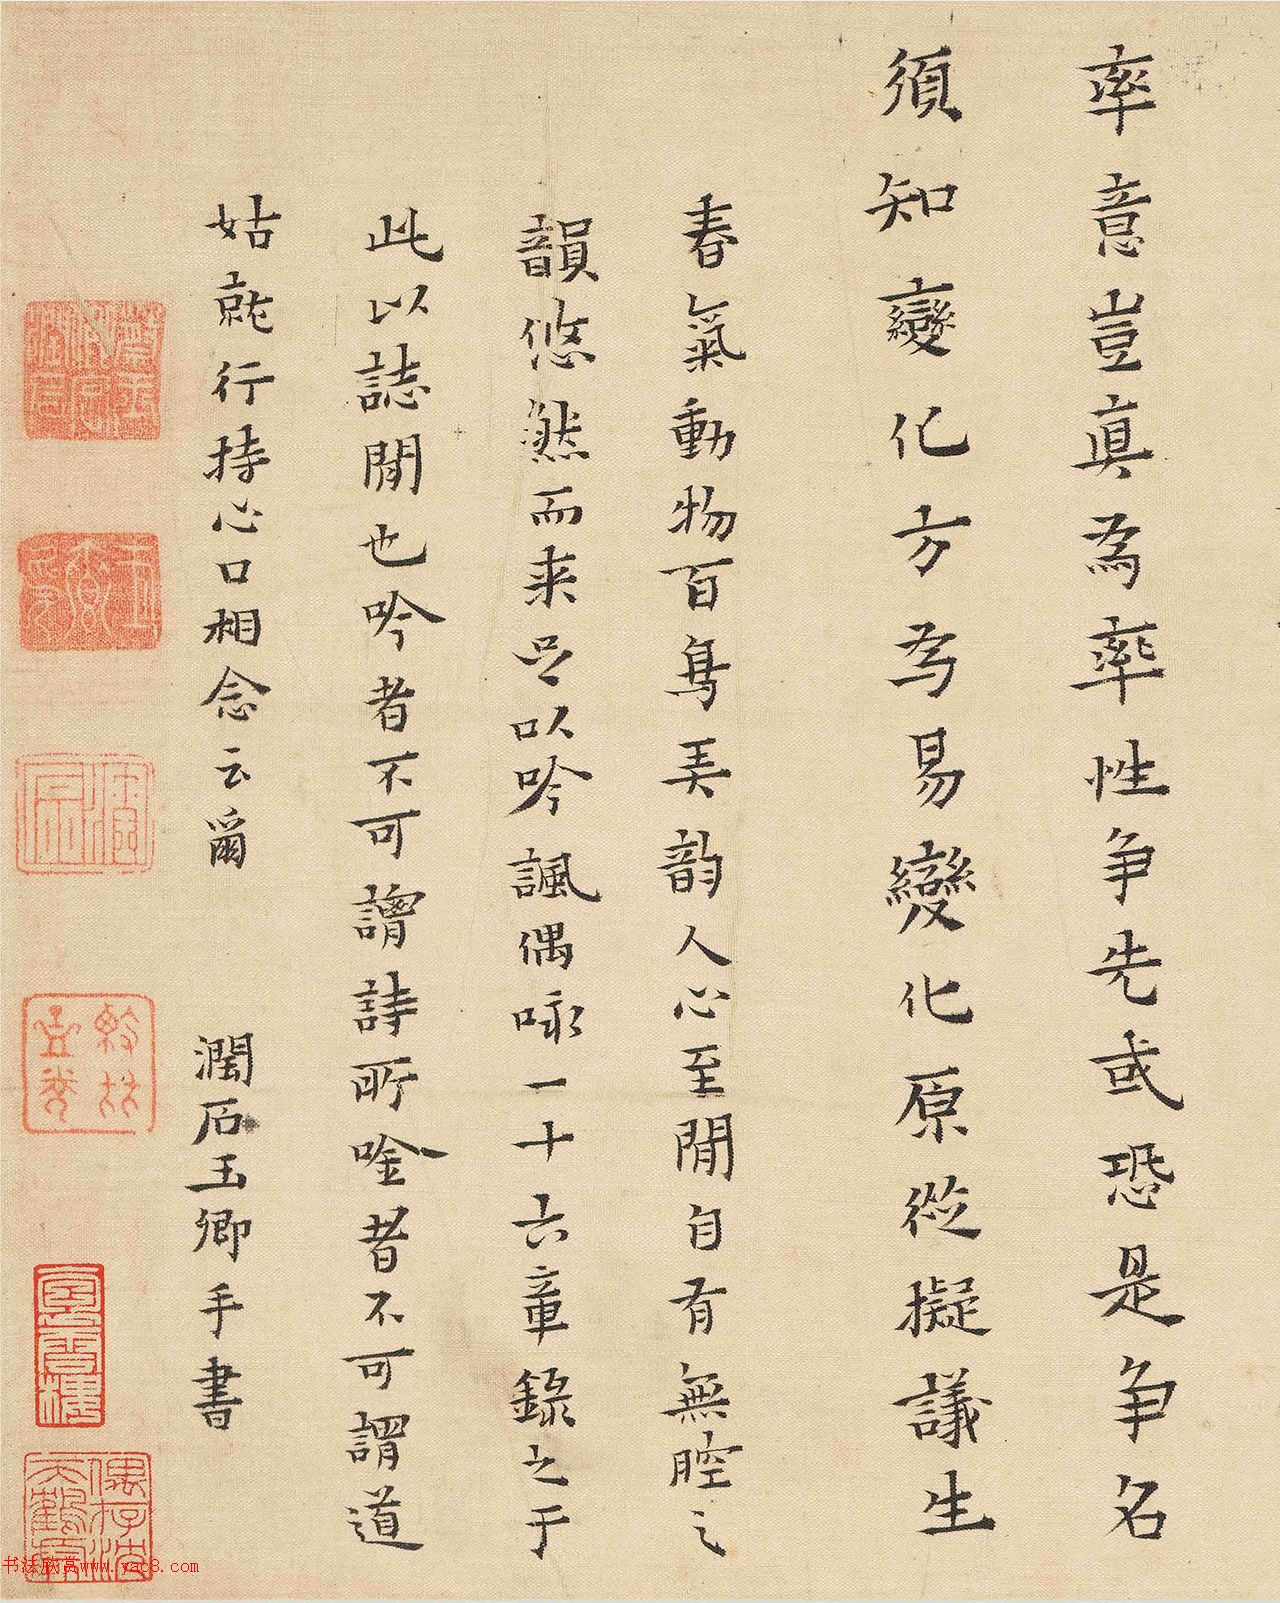 率意豈真為率性争先或恐是争名
須知變化方為易變化原從擬議生
春氣動物百鳥弄韵人心至閒自有無腔之
韻悠然而来足以吟諷偶咏一十六章錄之于
此以誌閒也吟者不可謂詩所唫者不可謂道
姑就行持心口相念云爾
潤石玉卿手書
书法欣赏www.yac8.com